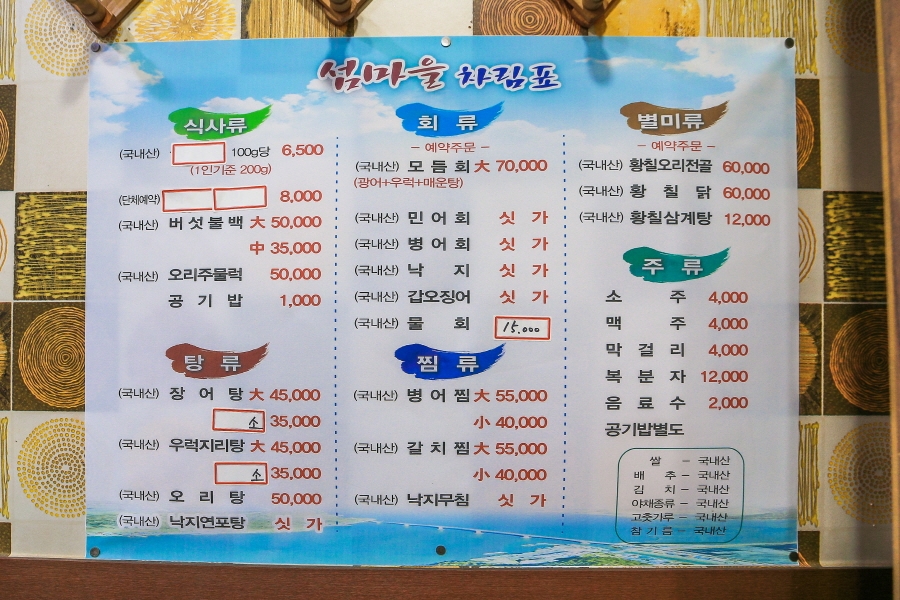 섬마을 차림표
식사류
(국내산) 100g당 6,500
(1인기준 200g)
(단체예약) 8,000
(국내산) 버섯불백 大 50,000
中 35,000
(국내산) 오리주물럭 50,000
공기밥 1,000
탕류
(국내산) 장어탕 大 45,000
소 35,000
(국내산) 우럭지리탕 大 45,000
소 35,000
(국내산) 오리탕 50,000
(국내산) 낙지연포탕 싯가
회류
- 예약주문 -
(국내산) 모듬회 大 70,000
(광어+우럭+매운탕)
(국내산) 민어회 싯가
(국내산) 병어회 싯가
(국내산) 낙지 싯가
(국내산) 갑오징어 싯가
(국내산) 물회 15.000
찜류
(국내산) 병어찜 大 55,000
小 40,000
(국내산) 갈치찜 大 55,000
小 40,000
(국내산) 낙지무침 싯가
별미류
- 예약주문 -
(국내산) 황칠오리전골 60,000
(국내산) 황칠닭 60,000
(국내산) 황칠삼계탕 12,000
주류
소주 4,000
맥주 4,000
막걸리 4,000
복분자 12,000
음료수 2,000
공기밥별도
쌀 - 국내산
배추 - 국내산
김치 - 국내산
야채종류 - 국내산
고춧가루 - 국내산
참기름 - 국내산